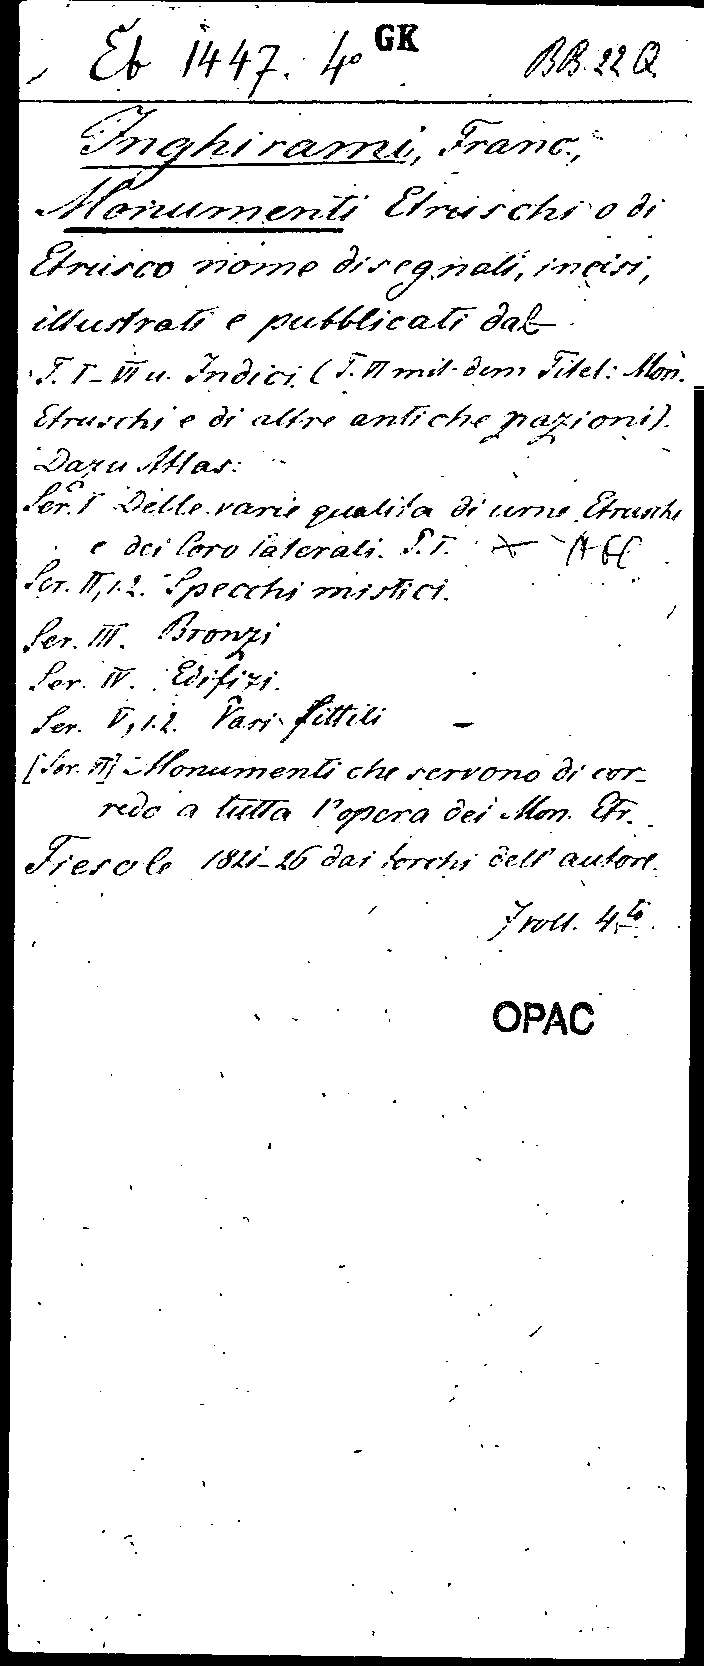 Eb 1447. 4° GK BB. 22 Q
Inghirami, Franc.,
Monumenti Etruschi o di
Etrusco nome disegnati, incisi,
illustrati e pubblicati dal
T. I-VI u. Indici. (T. VI mit dem Titel: Mon.
Etruschi e di altre antiche nazioni).
Dazu Atlas:
Ser. I Delle varie qualita di urne Etrusche
e dei loro laterali. P. I.
Ser. II, 1.2. Specchi mistici.
Ser. III. Bronzi
Ser. IV. Edifizi.
Ser. V, 1.2. Vasi fittili
[Ser. VI] Monumenti che servono di cor-
redo a tutta l'opera dei Mon. Etr.
Fiesole 1821-26 dai torchi dell' autore.
7 voll. 4to.
OPAC